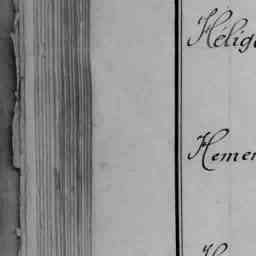 Hélig
Hemer